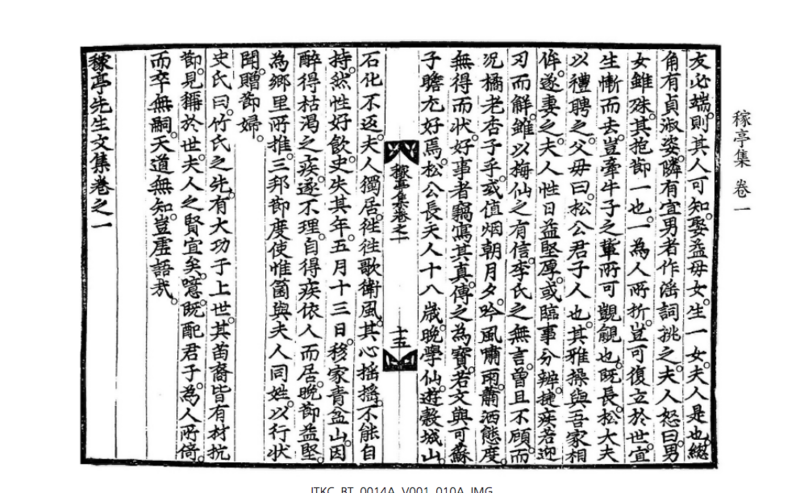 稼亭集 卷一
友必端。則其人可知。娶益母女。生一女。夫人是也。總
角有貞淑姿。隣有宜男者作淫詞挑之。夫人怒曰。男
女雖殊。其抱節一也。一爲人所折。豈可復立於世。宜
生慚而去。豈牽牛子之輩所可覬覦也。既長。松大夫
以禮聘之。父母曰。松公君子人也。其雅操與吾家相
侔。遂妻之。夫人性日益堅厚。或臨事分辨。捷疾若迎
刃而解。雖以梅仙之有信。李氏之無言。曾且不顧。而
况橘老杏子乎。或値烟朝月夕。吟風嘯雨。蕭洒態度。
無得而狀。好事者竊寫其眞。傳之爲寶。若文與可,蘇
子瞻尤好焉。松公長夫人十八歲。晚學仙。遊穀城山。
稼亭集卷之一
十五
石化不返。夫人獨居。徃徃歌衛風。其心搖搖。不能自
持。然性好飮。史失其年。五月十三日。移家靑盆山。因
醉得枯渴之疾。遂不理。自得疾依人而居。晚節益堅。
爲鄕里所推。三邦節度使惟箇與夫人同姓。以行狀
聞。贈節婦。
史氏曰。竹氏之先。有大功于上世。其苗裔皆有材抗
節。見稱於世。夫人之賢宜矣。噫。既配君子。爲人所倚。
而卒無嗣。天道無知。豈虛語哉。
稼亭先生文集卷之一
ITKC_BT_0014A_V001_010A.IMG